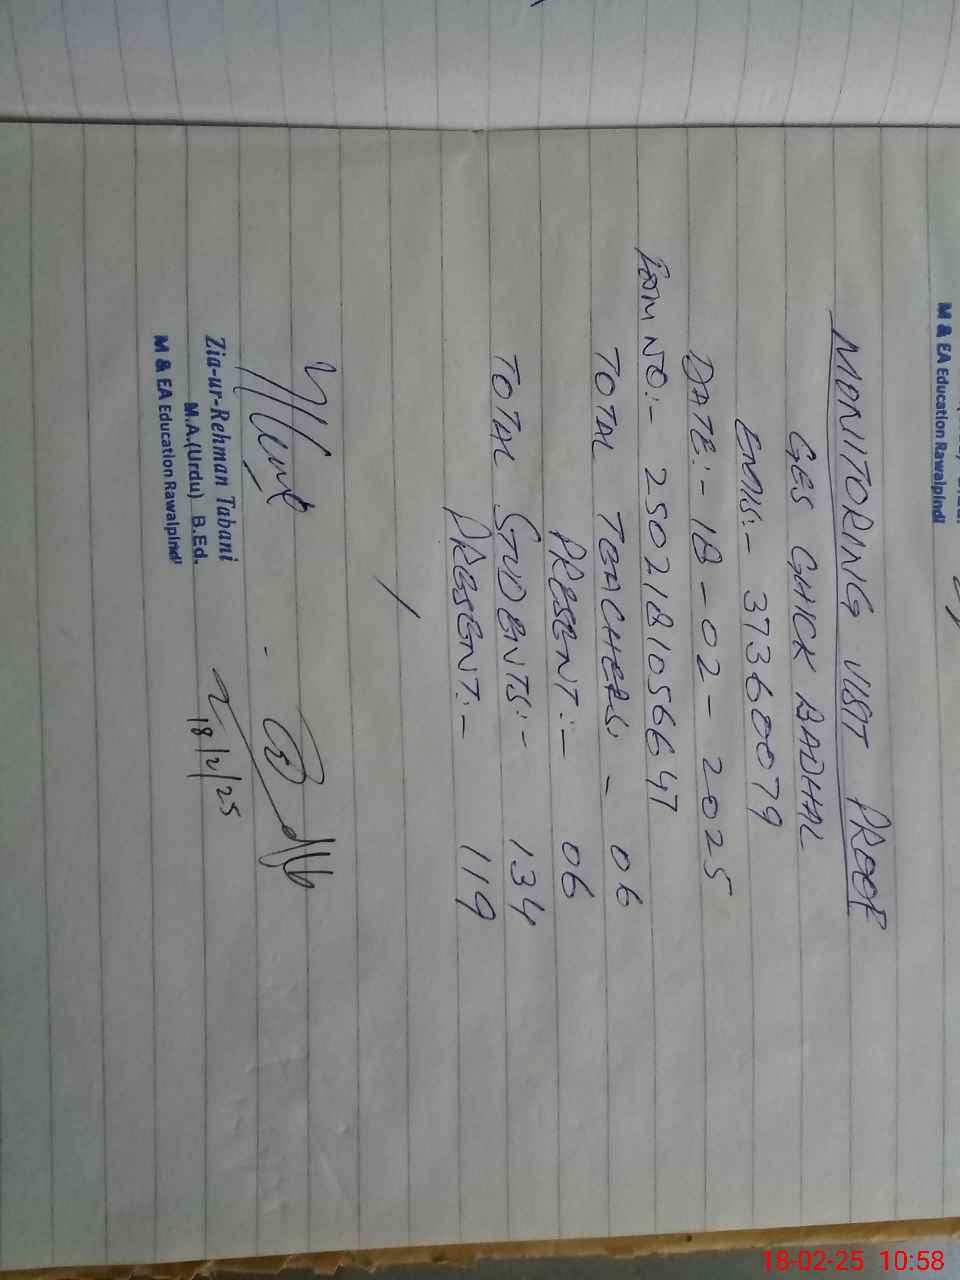 MONITORING VISIT PROOF
GES CHICK BADHAL
EMIS:- 37360079
DATE:- 18-02-2025
FORM NO:- 250218105664
TOTAL TEACHERS:- 06
PRESENT:- 06
TOTAL STUDENTS:- 134
PRESENT:- 119
18/2/25
Zia-ur-Rehman Tabani
M.A.(Urdu) B.Ed.
M & EA Education Rawalpindi
M & EA Education Rawalpindi
18-02-25 10:58